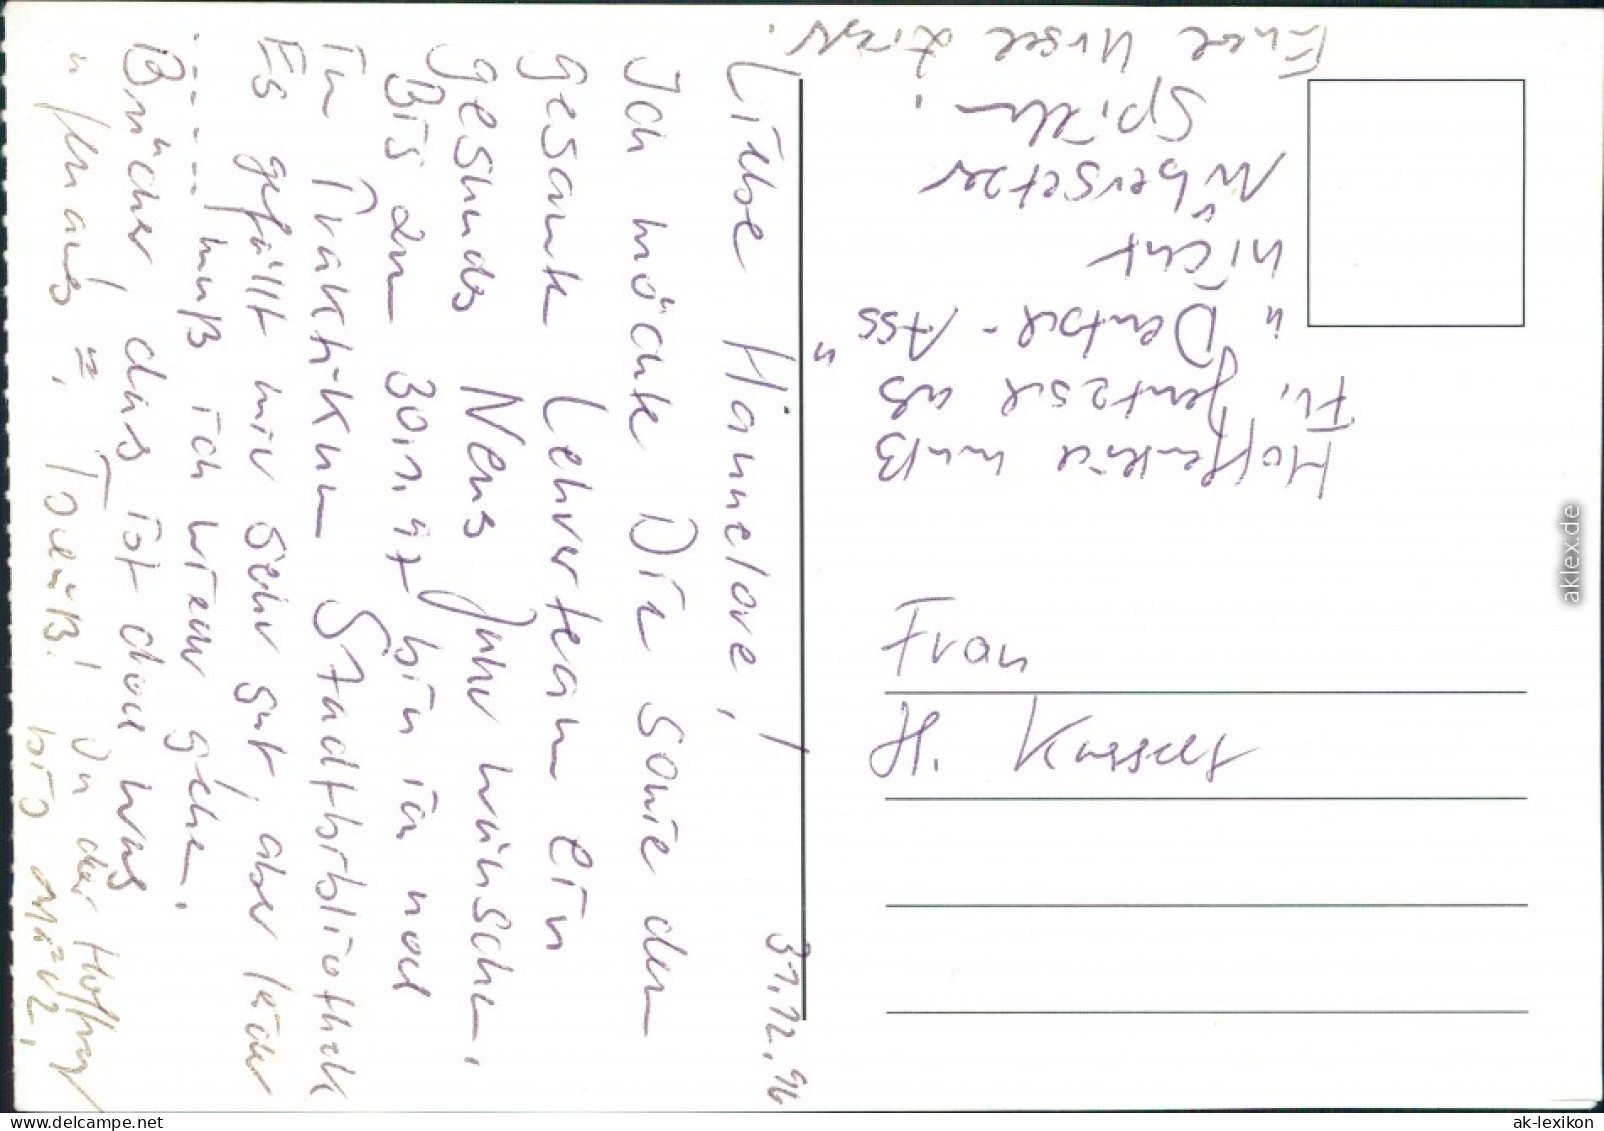 31.12.96
Liebe Hannelore,!
Ich möchte Dir sowie dem
gesamten Lehrerteam ein
gesundes Neues Jahr wünschen.
Bis zum 30.1.97 bin ich noch
im Praktikum Stadtbibliothek
Es gefällt mir sehr gut, aber leider
muß ich wieder gehen.
Bücher das ist doch was
Tschüß! In der Hoffnung
bis März.
Hoffentlich muß
Fr. als
" Deutsch-Ass"
nicht
Übersetzer
spielen.
Eure Ursel
Frau
H.
aklex.de
ak-lexikon